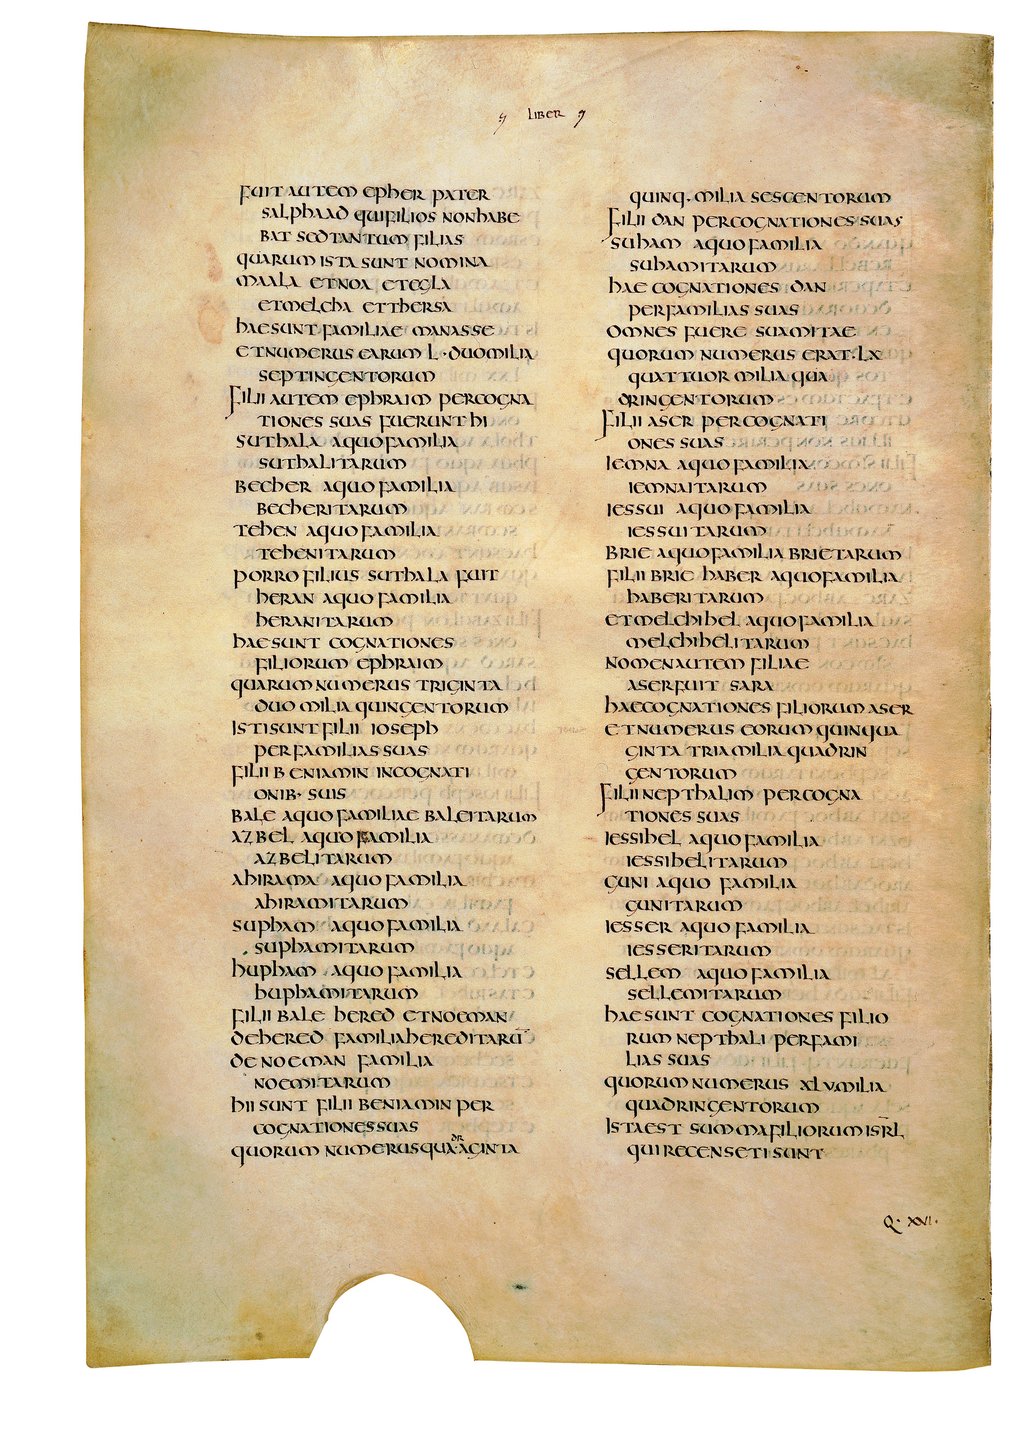 LIBER
FUIT AUTEM EPHER PATER
SALPHAAD QUI FILIOS NON HABE
BAT SED TANTUM FILIAS
QUARUM ISTA SUNT NOMINA
MAALA ET NOA ET EGLA
ET MELCHA ET THERSA
HAE SUNT FAMILIAE MANASSE
ET NUMERUS EARUM L · DUO MILIA
SEPTINGENTORUM
FILII AUTEM EPHRAIM PER COGNA
TIONES SUAS FUERUNT HI
SUTHALA A QUO FAMILIA
SUTHALITARUM
BECHER A QUO FAMILIA
BECHERITARUM
TEHEN A QUO FAMILIA
TEHENITARUM
PORRO FILIUS SUTHALA FUIT
HERAN A QUO FAMILIA
HERANITARUM
HAE SUNT COGNATIONES
FILIORUM EPHRAIM
QUARUM NUMERUS TRIGINTA
DUO MILIA QUINGENTORUM
ISTI SUNT FILII IOSEPH
PER FAMILIAS SUAS
FILII BENIAMIN IN COGNATI
ONIB· SUIS
BALE A QUO FAMILIAE BALEITARUM
AZBEL A QUO FAMILIA
AZBELITARUM
AHIRAMA A QUO FAMILIA
AHIRAMITARUM
SUPHAM A QUO FAMILIA
SUPHAMITARUM
HUPHAM A QUO FAMILIA
HUPHAMITARUM
FILII BALE HERED ET NOEMAN
DE HERED FAMILIA HEREDITARŪ
DE NOEMAN FAMILIA
NOEMITARUM
HII SUNT FILII BENIAMIN PER
COGNATIONES SUAS
QUORUM NUMERUS QUADRAGINTA
QUINQ· MILIA SESCENTORUM
FILII DAN PER COGNATIONES SUAS
SUHAM A QUO FAMILIA
SUHAMITARUM
HAE COGNATIONES DAN
PER FAMILIAS SUAS
OMNES FUERE SUAMITAE
QUORUM NUMERUS ERAT· LX
QUATTUOR MILIA QUA
DRINGENTORUM
FILII ASER PER COGNATI
ONES SUAS
IEMNA A QUO FAMILIA
IEMNAITARUM
IESSUI A QUO FAMILIA
IESSUITARUM
BRIE A QUO FAMILIA BRIETARUM
FILII BRIE HABER A QUO FAMILIA
HABERITARUM
ET MELCHIHEL A QUO FAMILIA
MELCHIHELITARUM
NOMEN AUTEM FILIAE
ASER FUIT SARA
HAE COGNATIONES FILIORUM ASER
ET NUMERUS EORUM QUINQUA
GINTA TRIA MILIA QUADRIN
GENTORUM
FILII NEPTHALIM PER COGNA
TIONES SUAS
IESSIHEL A QUO FAMILIA
IESSIHELITARUM
GUNI A QUO FAMILIA
GUNITARUM
IESSER A QUO FAMILIA
IESSERITARUM
SELLEM A QUO FAMILIA
SELLEMITARUM
HAE SUNT COGNATIONES FILIO
RUM NEPTHALI PER FAMI
LIAS SUAS
QUORUM NUMERUS XLV MILIA
QUADRINGENTORUM
ISTA EST SUMMA FILIORUM ISRL̄
QUI RECENSETI SUNT
Q· XXVI·